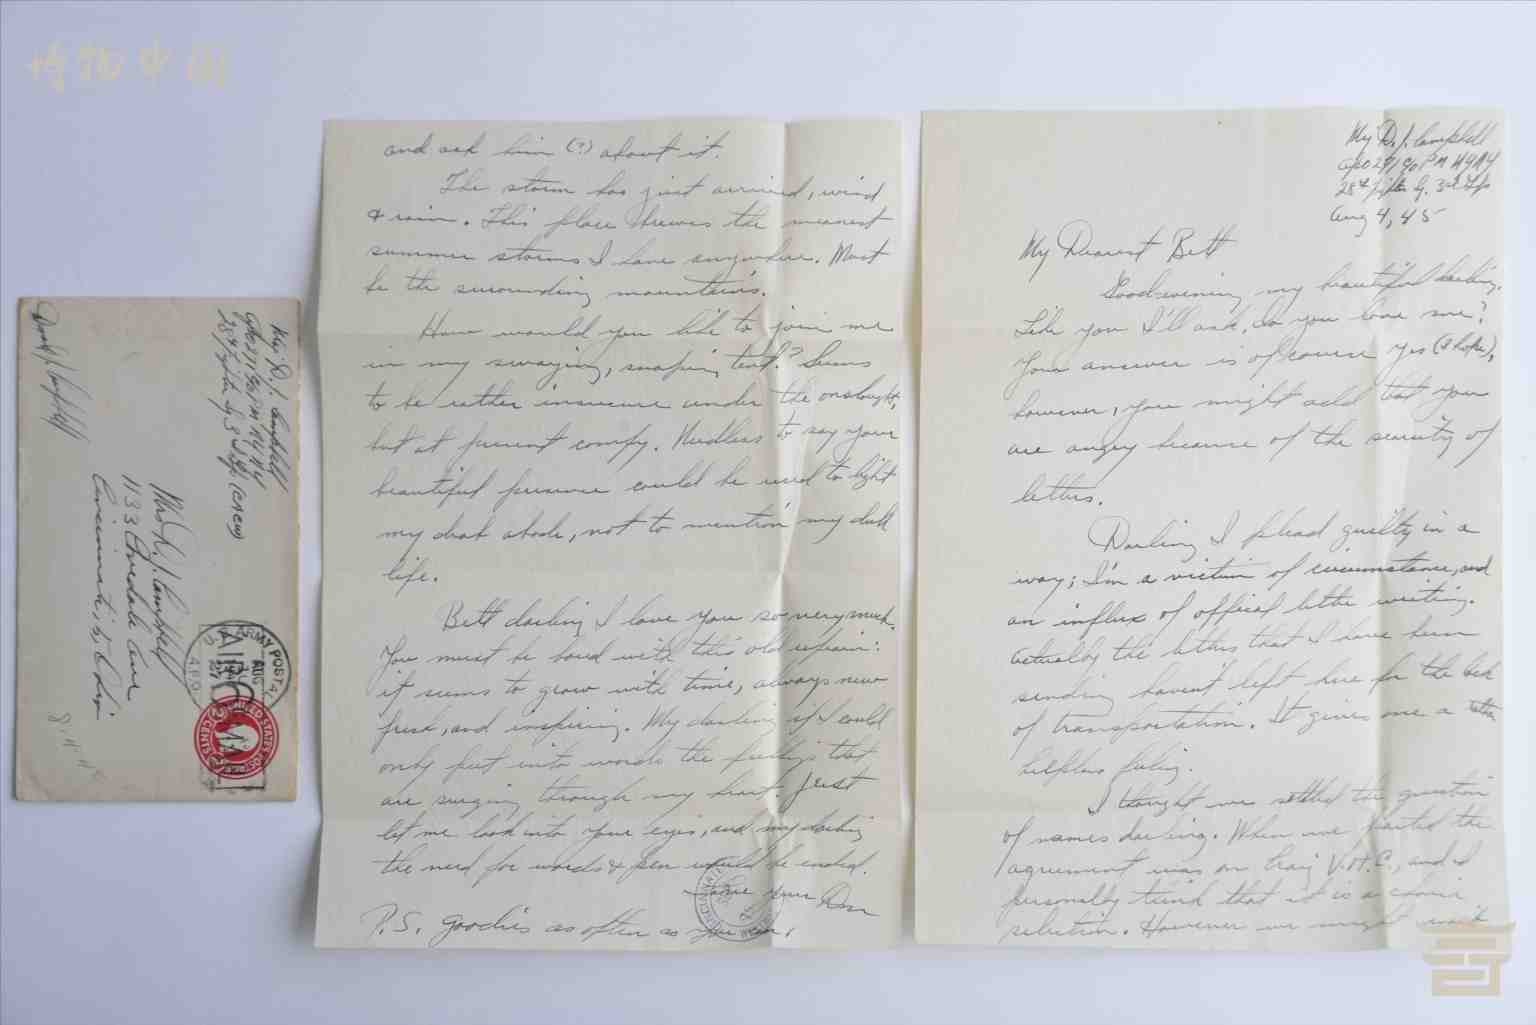 博物中国
Maj D. J. Campbell
APO 271 c/o PM NY NY
28th Fighter Sq. 3rd
Aug 4, 45
My Dearest Bett
Good evening my beautiful darling.
Like you I'll ask, do you love me?
Your answer is of course yes (I hope),
however, you might add that you
are angry because of the scarcity of
letters.
Darling I plead guilty in a
way; I'm a victim of circumstance, and
an influx of offical letter writing.
Actually the letters that I have been
sending haven't left here for the lack
of transportation. It gives one a rather
helpless feeling.
I thought we settled the question
of names darling. When we parted the
agreement was on Craig V.H.C., and I
personally think that it is a
selection. However we might wait
and ask him (?) about it.
The storm has just arrived, wind
& rain. This place brews the meanest
summer storms I have anywhere. Must
be the surounding mountains.
How would you like to join me
in my swaying, snaping tent? Seems
to be rather insecure under the onslought,
but at present comfy. Needless to say your
beautiful presence could be used to light
my drab abode, not to mention my dull
life.
Bett darling I love you so very much.
You must be bored with this old refrain:
it seems to grow with time, always new
fresh, and inspiring. My darling if I could
only put into words the feelings that
are surging through my heart. Just
let me look into your eyes, and my darling
the need for words & pen would be ended.
Love your Don
P.S. Goodies as often as you can.
Maj D. J. Campbell
APO 271 c/o PM NY NY
28th Fighter Sq 3
Mrs D. J. Campbell
1133 Avondale Ave
Cincinnati, Ohio
U.S. ARMY POSTAL
APO
AUG
AIR MAIL
UNITED STATES POSTAGE
2 CENTS 2